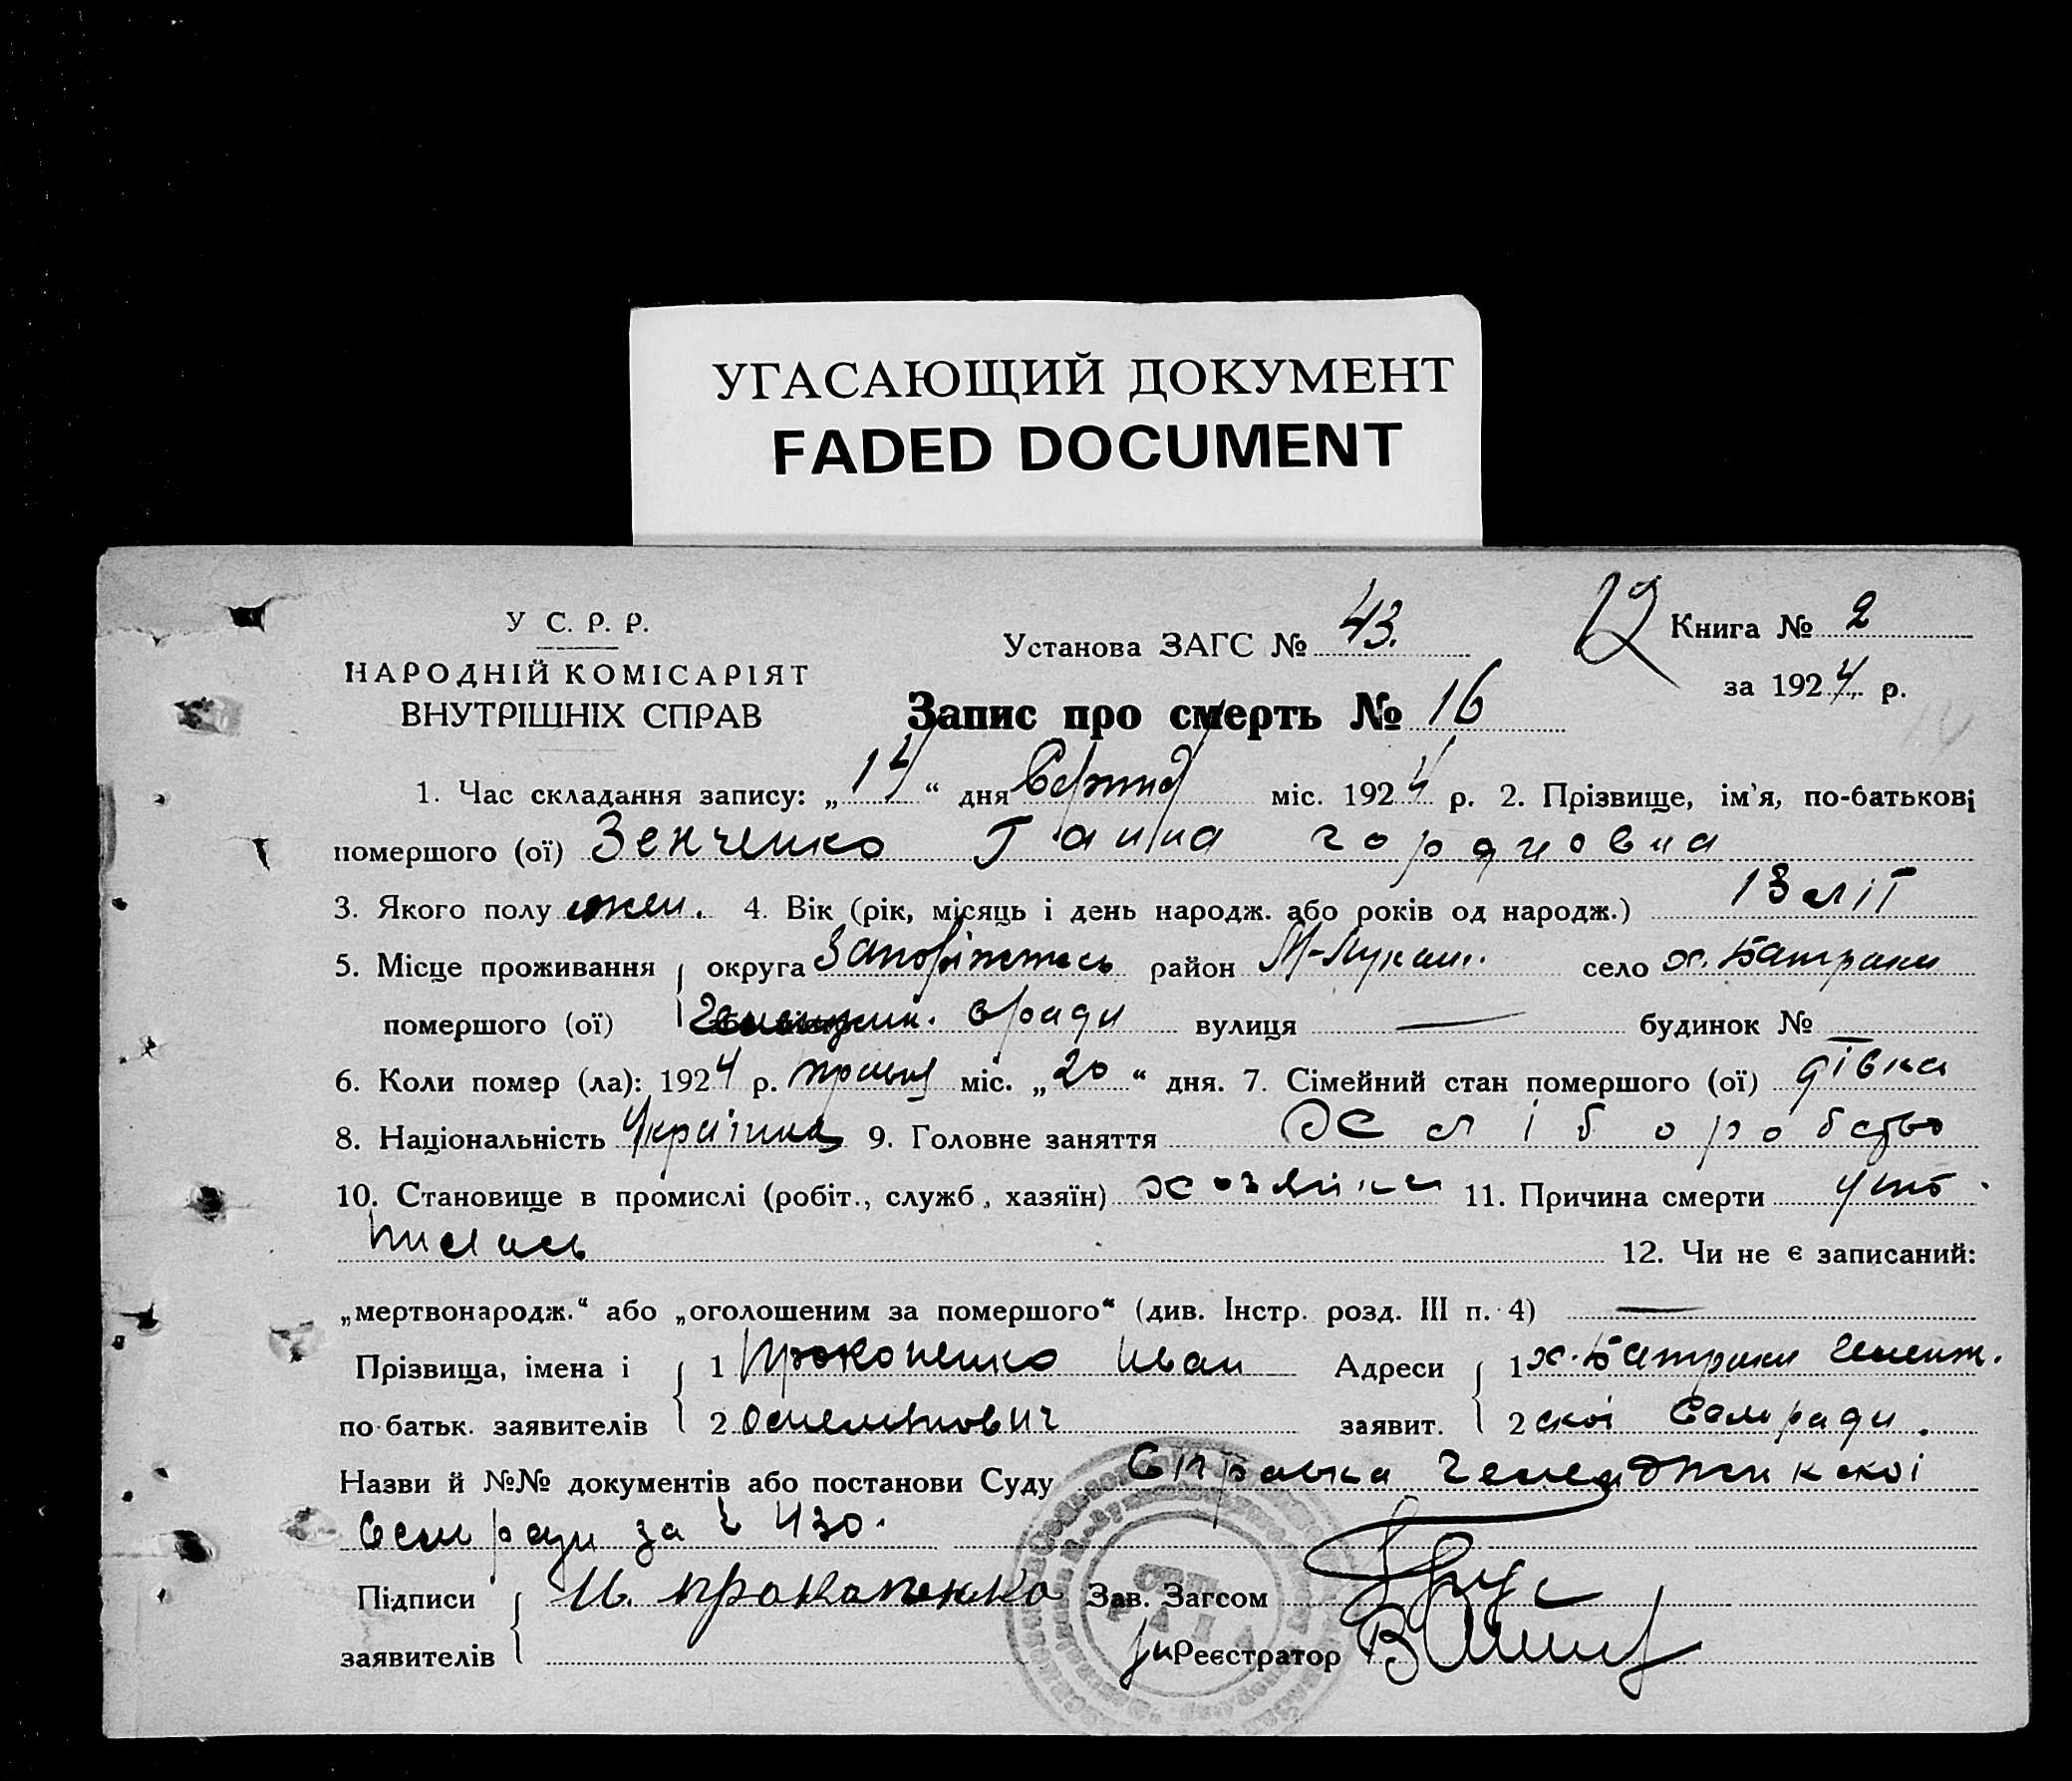 УГАСАЮЩИЙ ДОКУМЕНТ
FADED DOCUMENT
У С. Р. Р.
НАРОДНІЙ КОМІСАРІЯТ
ВНУТРІШНІХ СПРАВ
Установа ЗАГС № 43.
12 Книга № 2
за 1924 р.
Запис про смерть № 16
1. Час складання запису: „14“ дня Серпня міс. 1924 р. 2. Прізвище, ім'я, по-батькові
помершого (ої) Зенченко Ганна гордиовна
3. Якого полу жен. 4. Вік (рік, місяць і день народж. або років од народж.) 13 літ
5. Місце проживання округа Запоріжжсь район село х. Батраки
помершого (ої) сради вулиця — будинок № —
6. Коли помер (ла): 1924 р. міс. „20“ дня. 7. Сімейний стан помершого (ої) дівка
8. Національність Українка 9. Головне заняття Хліборобство
10. Становище в промислі (робіт., служб., хазяїн) хозяйка 11. Причина смерти уто
пилась 12. Чи не є записаний:
„мертвонародж.“ або „оголошеним за помершого“ (див. Інстр. розд. III п. 4) —
Прізвища, імена і 1 Прокопенко Иван Адреси 1 х. Батраки
по батьк. заявителів 2 заявит. 2 скоі Сельради.
Назви й №№ документів або постанови Суду Справка
Сельради за № 430.
Підписи И. прокопенко Зав. Загсом
заявителів Реєстратор